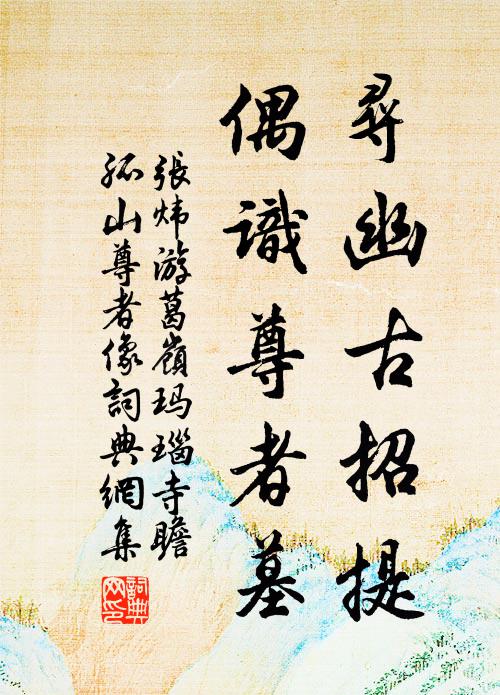 尋幽古招提
偶識尊者墓
張炜游葛嶺玛瑙寺瞻
孤山尊者像詞典網集
詞典网印